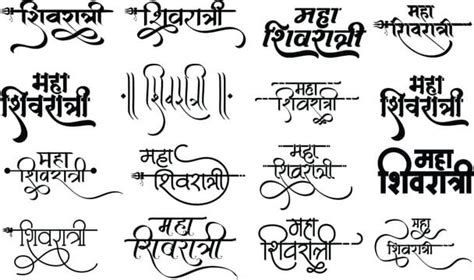 शिवरात्री
शिवरात्री
महा
शिवरात्री
महा
शिवरात्री
महा
शिवरात्री
॥ शिवरात्री ॥
महा
शिवरात्री
महा
शिवरात्री
महा
शिवरात्री
महा
शिवरात्री
महा
शिवरात्री
महा
शिवरात्री
शिवरात्री
महा
शिवरात्री
महा
शिवरात्री
महा
शिवरात्री